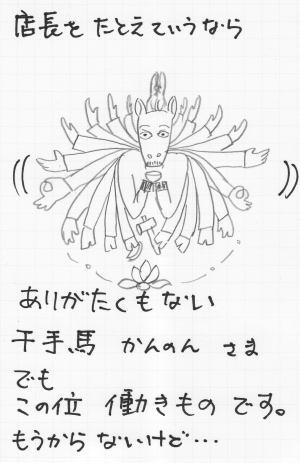 店長を たとえていうなら
ありがたくもない
千手馬 かんのん さま
でも
この位 働きもの です。
もうからないけど…